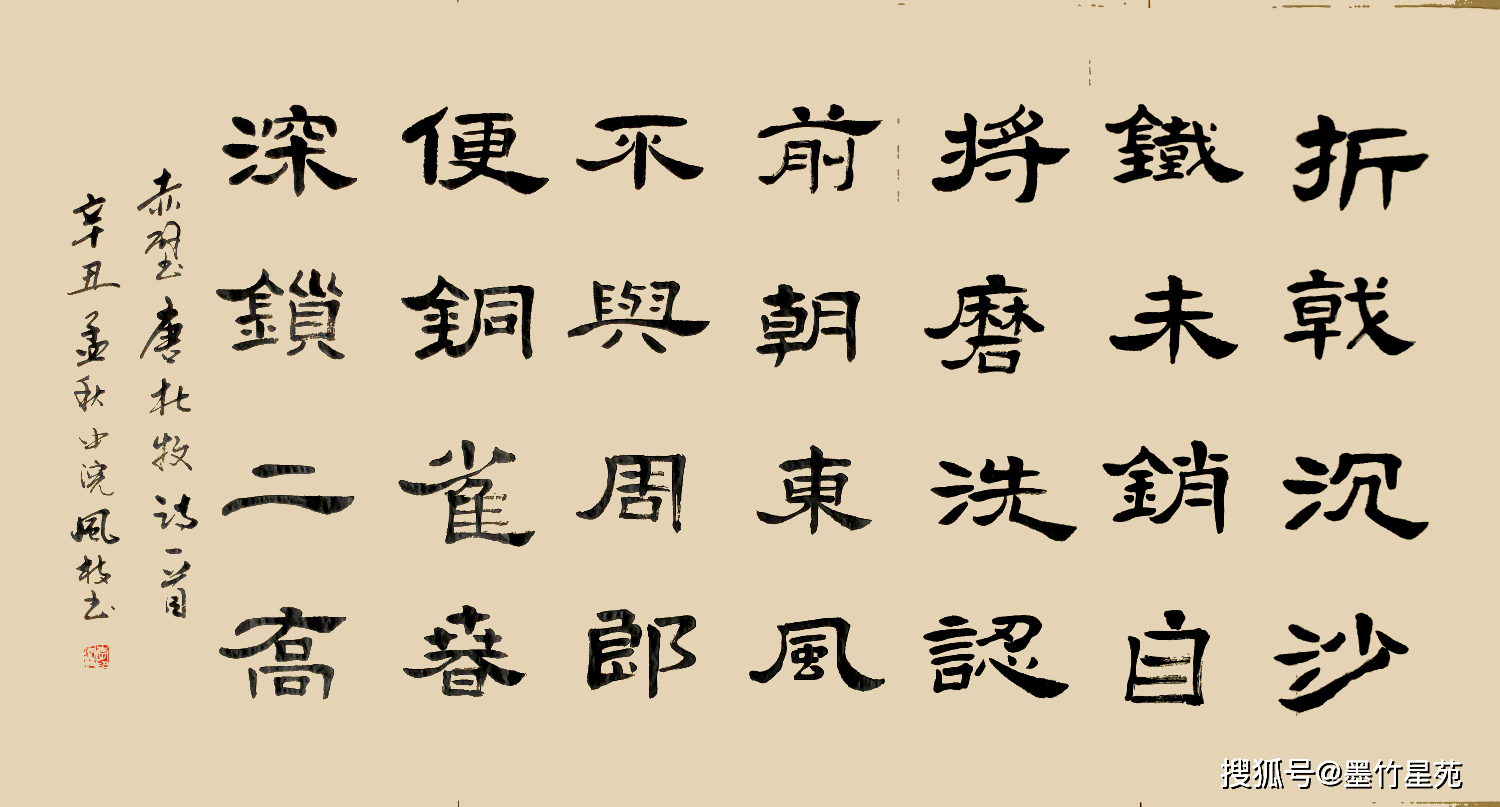 折戟沉沙
鐵未銷自
將磨洗認
前朝東風
不與周郎
便銅雀春
深鎖二喬
赤壁唐杜牧诗一首
辛丑孟秋中浣風枝书
搜狐号@墨竹星苑